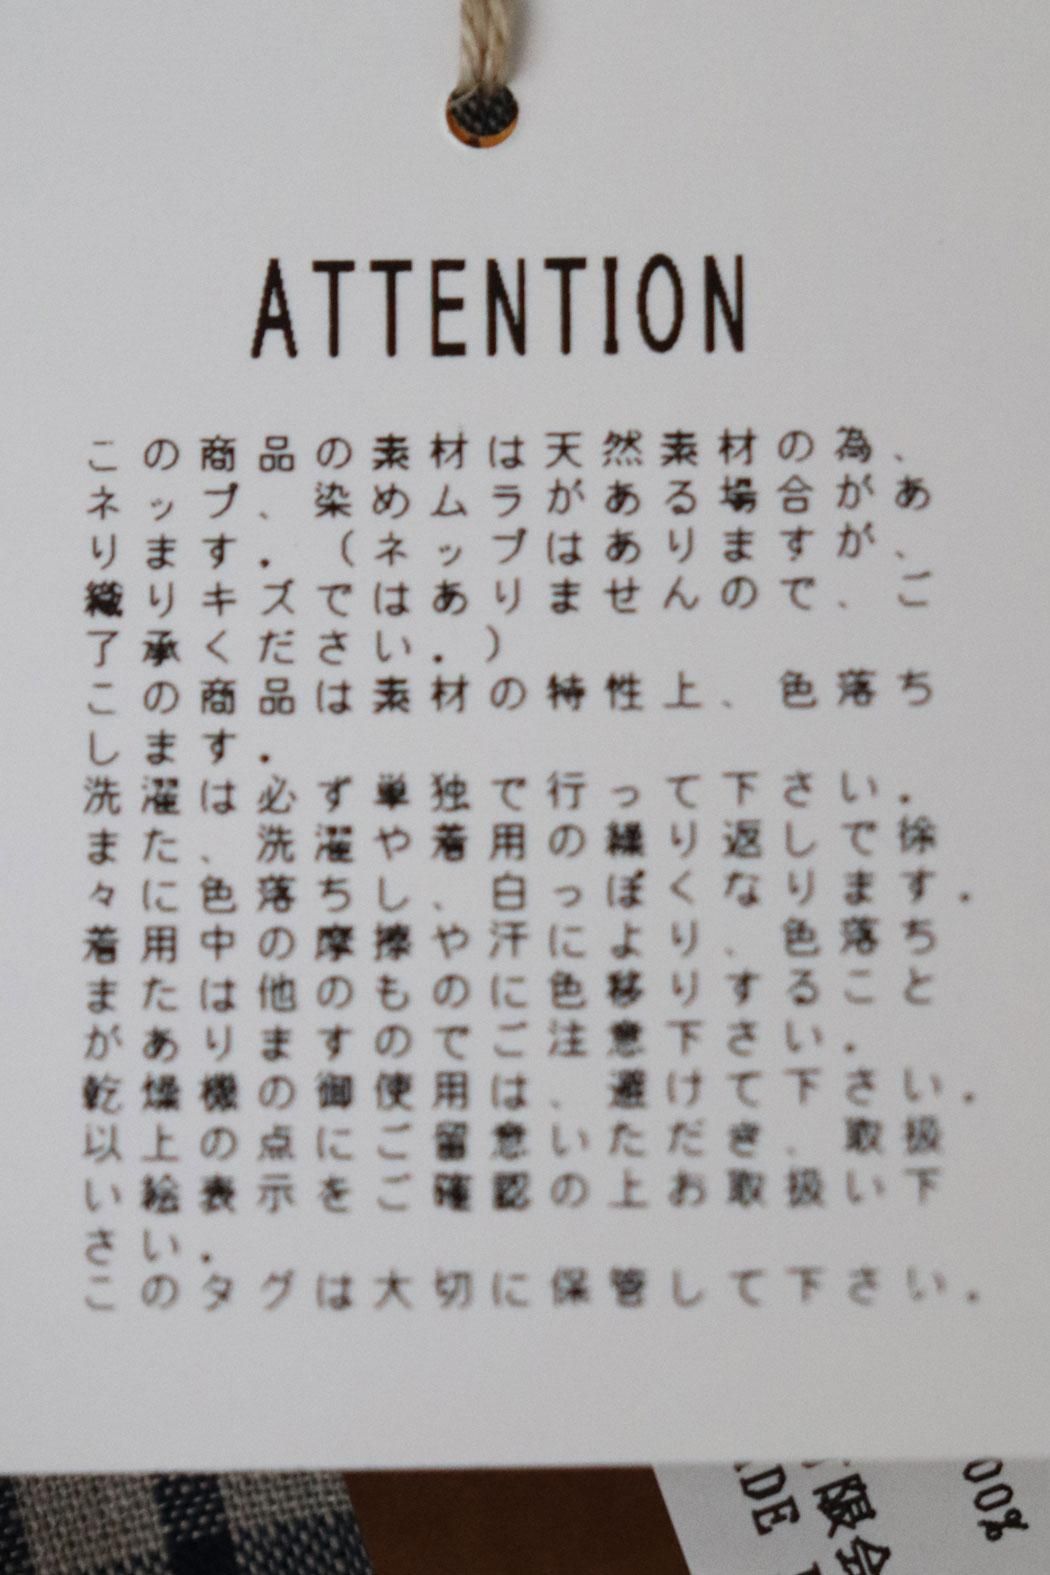 ATTENTION
この商品の素材は天然素材の為、
ネップ、染めムラがある場合があ
ります．（ネップはありますが、
織りキズではありませんので、ご
了承ください．）
この商品は素材の特性上、色落ち
します．
洗濯は必ず単独で行って下さい．
また、洗濯や着用の繰り返しで徐
々に色落ちし、白っぽくなります．
着用中の摩擦や汗により、色落ち
または他のものに色移りすること
がありますのでご注意下さい．
乾燥機の御使用は、避けて下さい．
以上の点にご留意いただき、取扱
い絵表示をご確認の上お取扱い下
さい．
このタグは大切に保管して下さい．
00%
限会
ADE